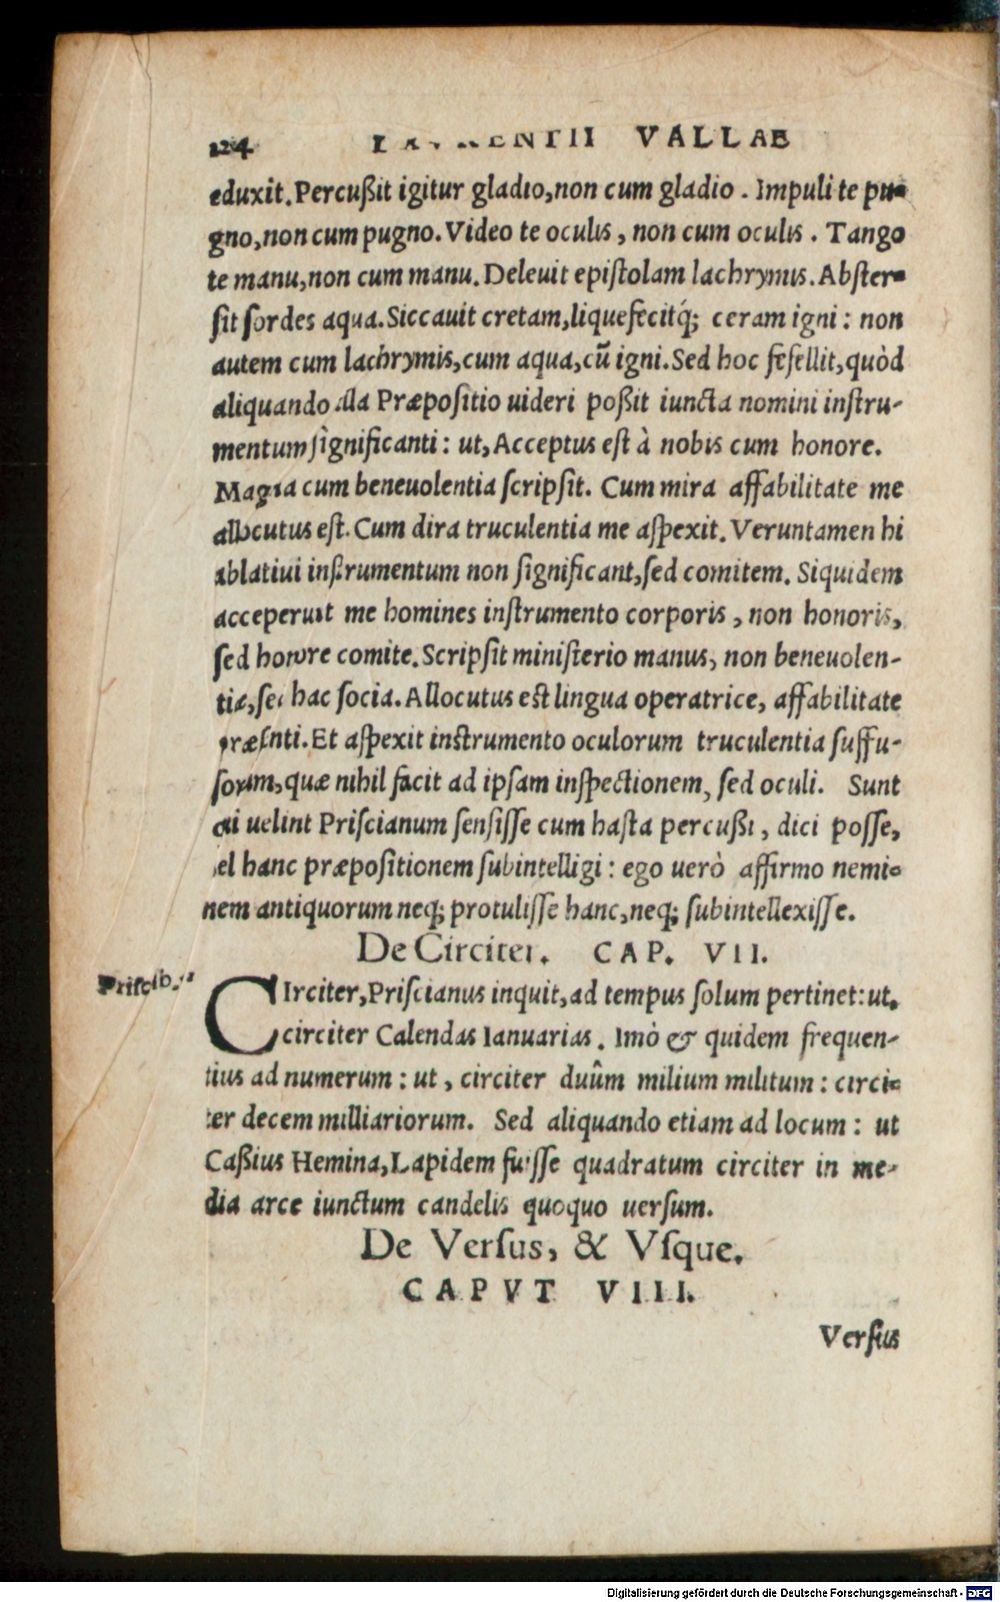 124 LAVRENTII VALLAE
eduxit. Percußit igitur gladio, non cum gladio. Impuli te pu-
gno, non cum pugno. Video te oculis, non cum oculis. Tango
te manu, non cum manu. Deleuit epiſtolam lachrymis. Abſter-
ſit ſordes aqua. Siccauit cretam, liquefecitq́; ceram igni: non
autem cum lachrymis, cum aqua, cū igni. Sed hoc fefellit, quòd
aliquando illa Præpoſitio uideri poßit iuncta nomini inſtru-
mentum ſignificanti: ut, Acceptus eſt à nobis cum honore.
Magna cum beneuolentia ſcripſit. Cum mira affabilitate me
allocutus eſt. Cum dira truculentia me aſpexit. Veruntamen hi
ablatiui inſtrumentum non ſignificant, ſed comitem. Siquidem
acceperunt me homines inſtrumento corporis, non honoris,
ſed honore comite. Scripſit miniſterio manus, non beneuolen-
tiæ, ſed hac ſocia. Allocutus eſt lingua operatrice, affabilitate
præſenti. Et aſpexit inſtrumento oculorum truculentia ſuffu-
ſorum, quæ nihil facit ad ipſam inſpectionem, ſed oculi. Sunt
qui uelint Priſcianum ſenſiſſe cum haſta percußi, dici poſſe,
uel hanc præpoſitionem ſubintelligi: ego uerò affirmo nemi-
nem antiquorum neq; protuliſſe hanc, neq; ſubintellexiſſe.
De Circiter. CAP. VII.
Priſc
CIrciter, Priſcianus inquit, ad tempus ſolum pertinet: ut,
circiter Calendas Ianuarias. Imò & quidem frequen-
tius ad numerum: ut, circiter duûm milium militum: circi-
ter decem milliariorum. Sed aliquando etiam ad locum: ut
Caßius Hemina, Lapidem fuiſſe quadratum circiter in me-
dia arce iunctum candelis quoquo uerſum.
De Verſus, & Vſque.
CAPVT VIII.
Verſus
Digitalisierung gefördert durch die Deutsche Forschungsgemeinschaft - DFG